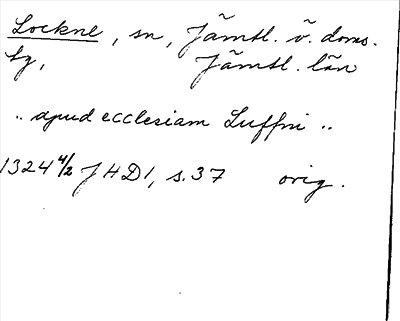 Lockne, sn, Jämtl. v. doms.
tg, Jämtl. län
.. apud ecclesiam Luffni ..
1324 4/2 JHD1, s. 37 orig.